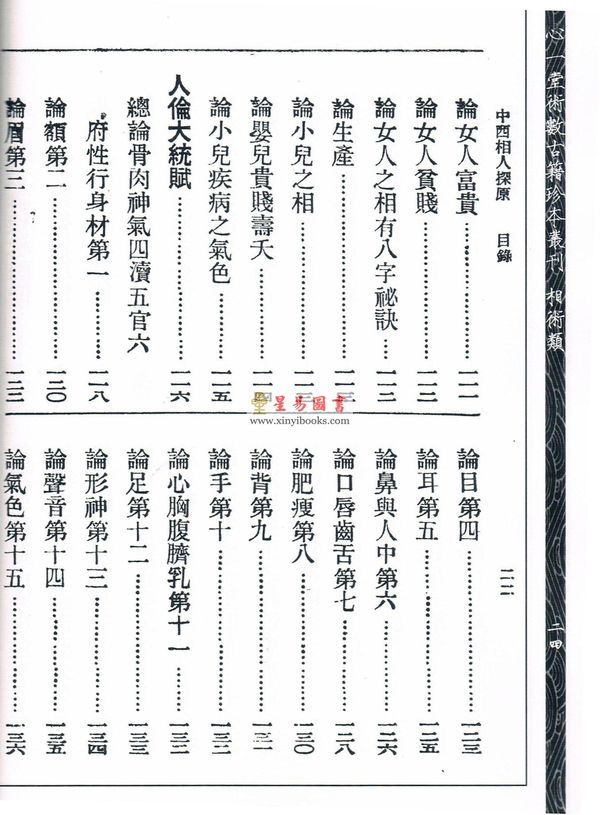 心一堂術數古籍珍本叢刊 相術類 二四
中西相人探原 目錄 二二
論女人富貴 一一一
論女人貧賤 一一二
論女人之相有八字祕訣 一一二
論生產 一一三
論小兒之相 一一三
論嬰兒貴賤壽夭 一一四
論小兒疾病之氣色 一一五
人倫大統賦 一一六
總論骨肉神氣四瀆五官六
府性行身材第一 一一八
論額第二 一二〇
論眉第三
論目第四 一二三
論耳第五 一二五
論鼻與人中第六 一二六
論口唇齒舌第七 一二八
論肥瘦第八 一三〇
論背第九 一三一
論手第十 一三二
論心胸腹臍乳第十一 一三二
論足第十二 一三三
論形神第十三 一三四
論聲音第十四 一三五
論氣色第十五 一三六
星易圖書
www.xinyibooks.com